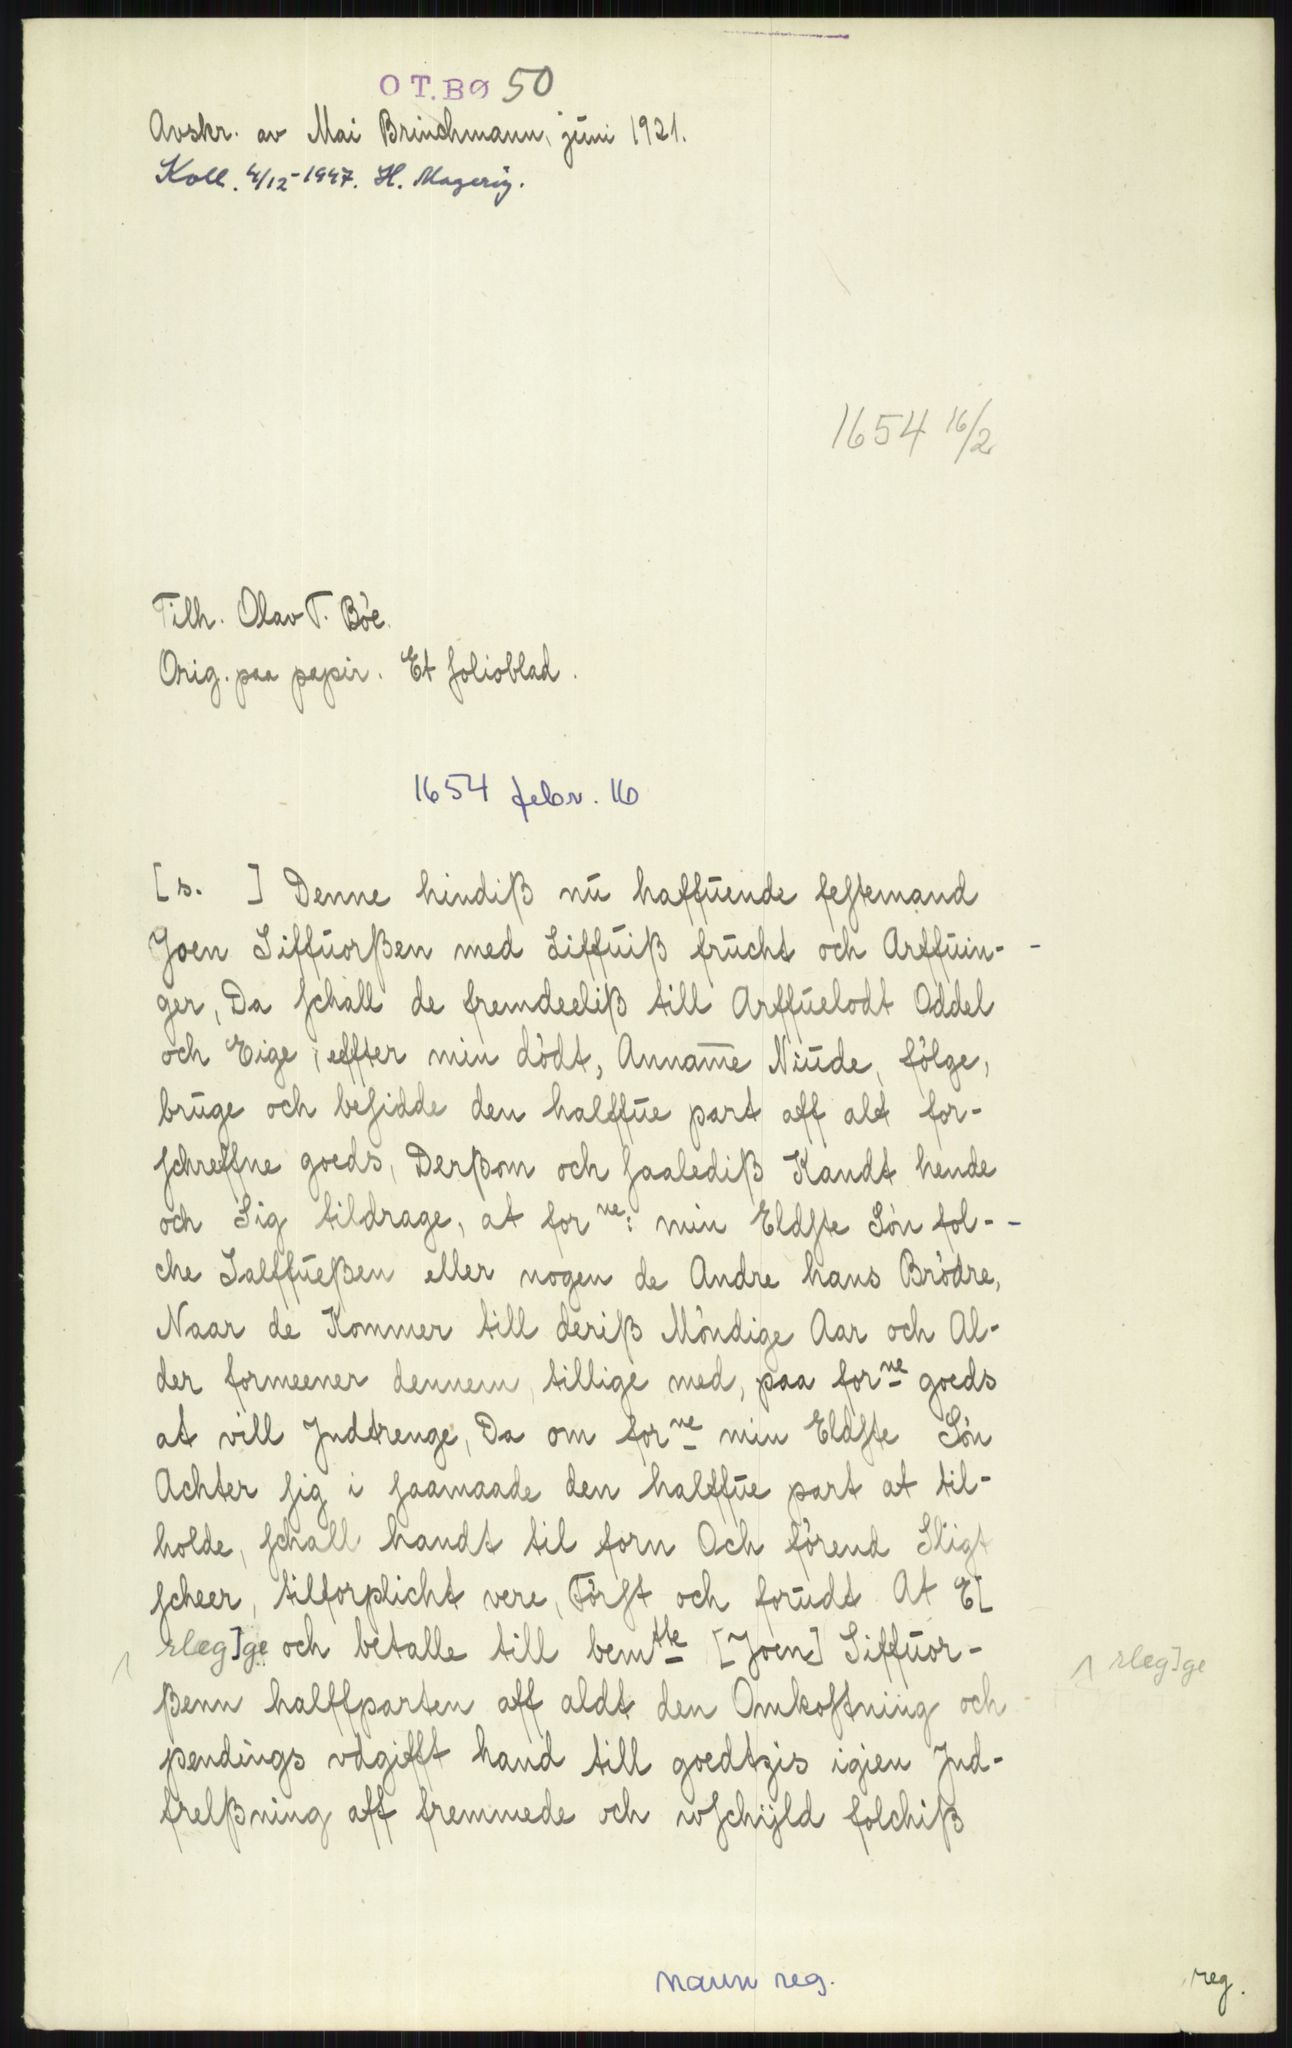 O T. BØ 50
Avskr. av Mai Brinchmann, juni 1921.
Koll. 4/12-1947. H. Magerøy.
1654 16/2
Tilh. Olav T. Böe.
Orig. paa papir. Et folioblad.
1654 febr. 16
[s. ] Denne hindiß nū haffūende festemand
Joen Siffūorßen med Liffūiß frūcht och Arffūin-
ger, Da schall de fremdeeliß till Arffūelodt Oddel
och Eige, effter min dödt, Annam̅e Niūde, fölge,
brūge och besidde den halffūe part aff alt for-
schreffne goeds, Derßom och saalediß Kandt hende
och Sig tildrage, at forne: min Eldste Sön fol-
che Salffūeßen eller nogen de Andre hans Brödre,
Naar de Kommer till deriß Möndige Aar och Al-
der formeener dennem, tillige med, paa forne goeds
at vill Jndtrenge, Da om forne min Eldste Sön
Achter sig i saamaade den halffūe part at til-
holde, schall handt til forn Och förend Sligt
scheer, tilforplicht vere, Först och forūdt At E[
rlæg]ge och betalle till bemtte [Joen] Siffūor-
ßenn halffparten aff aldt den Omkostning och
pendings vdgifft hand till goedtzis igien Jnd-
frelßning aff fremmede och wschÿld folchiß
rlæg]ge
navn reg.
reg.